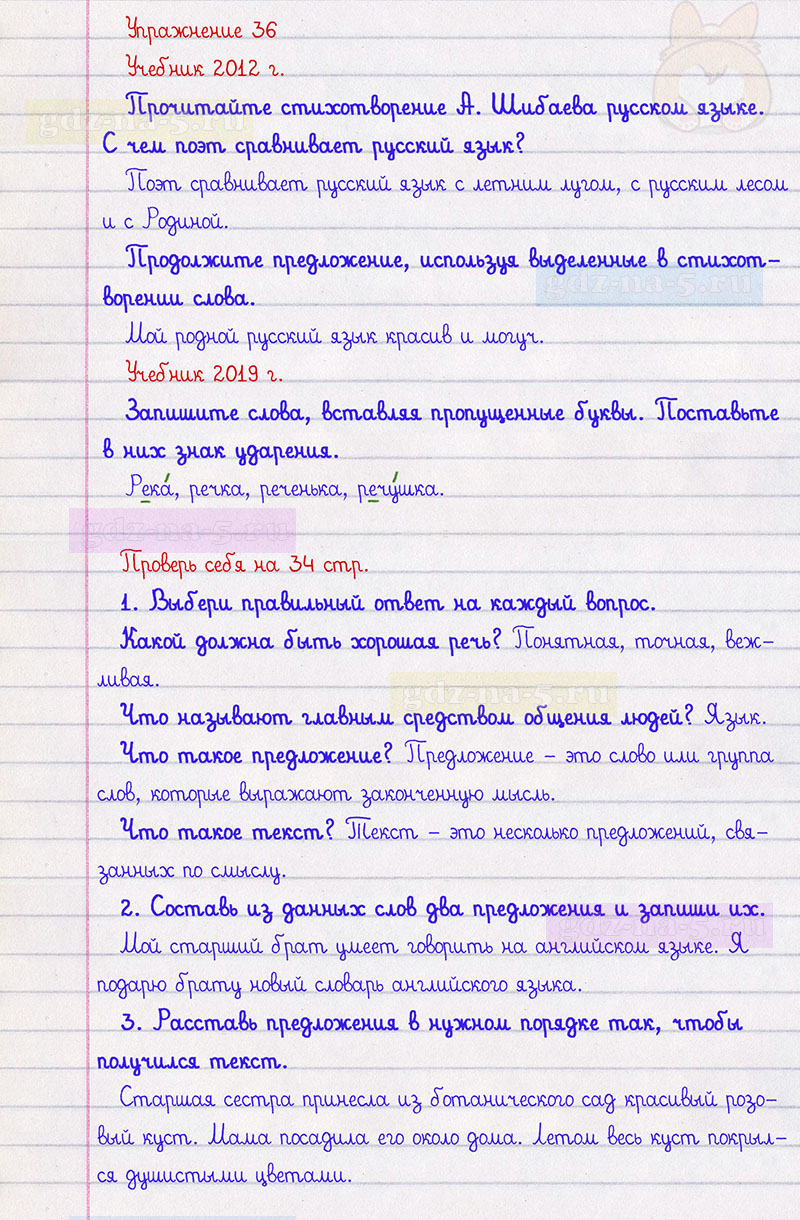 Упражнение 36
Учебник 2012 г.
Прочитайте стихотворение А. Шибаева русском языке.
gdz-na-5.ru
С чем поэт сравнивает русский язык?
Поэт сравнивает русский язык с летним лугом, с русским лесом
и с Родиной.
Продолжите предложение, используя выделенные в стихот-
gdz-na-5.ru
ворении слова.
Мой родной русский язык красив и могуч.
Учебник 2019 г.
Запишите слова, вставляя пропущенные буквы. Поставьте
в них знак ударения.
Река́, речка, реченька, речу́шка.
gdz-na-5.ru
Проверь себя на 34 стр.
1. Выбери правильный ответ на каждый вопрос.
Какой должна быть хорошая речь? Понятная, точная, веж-
ливая.
gdz-na-5.ru
Что называют главным средством общения людей? Язык.
Что такое предложение? Предложение – это слово или группа
слов, которые выражают законченную мысль.
Что такое текст? Текст – это несколько предложений, свя-
занных по смыслу.
2. Составь из данных слов два предложения и запиши их.
gdz-na-5.ru
Мой старший брат умеет говорить на английском языке. Я
подарю брату новый словарь английского языка.
3. Расставь предложения в нужном порядке так, чтобы
получился текст.
Старшая сестра принесла из ботанического сад красивый розо-
вый куст. Мама посадила его около дома. Летом весь куст покрыл-
ся душистыми цветами.